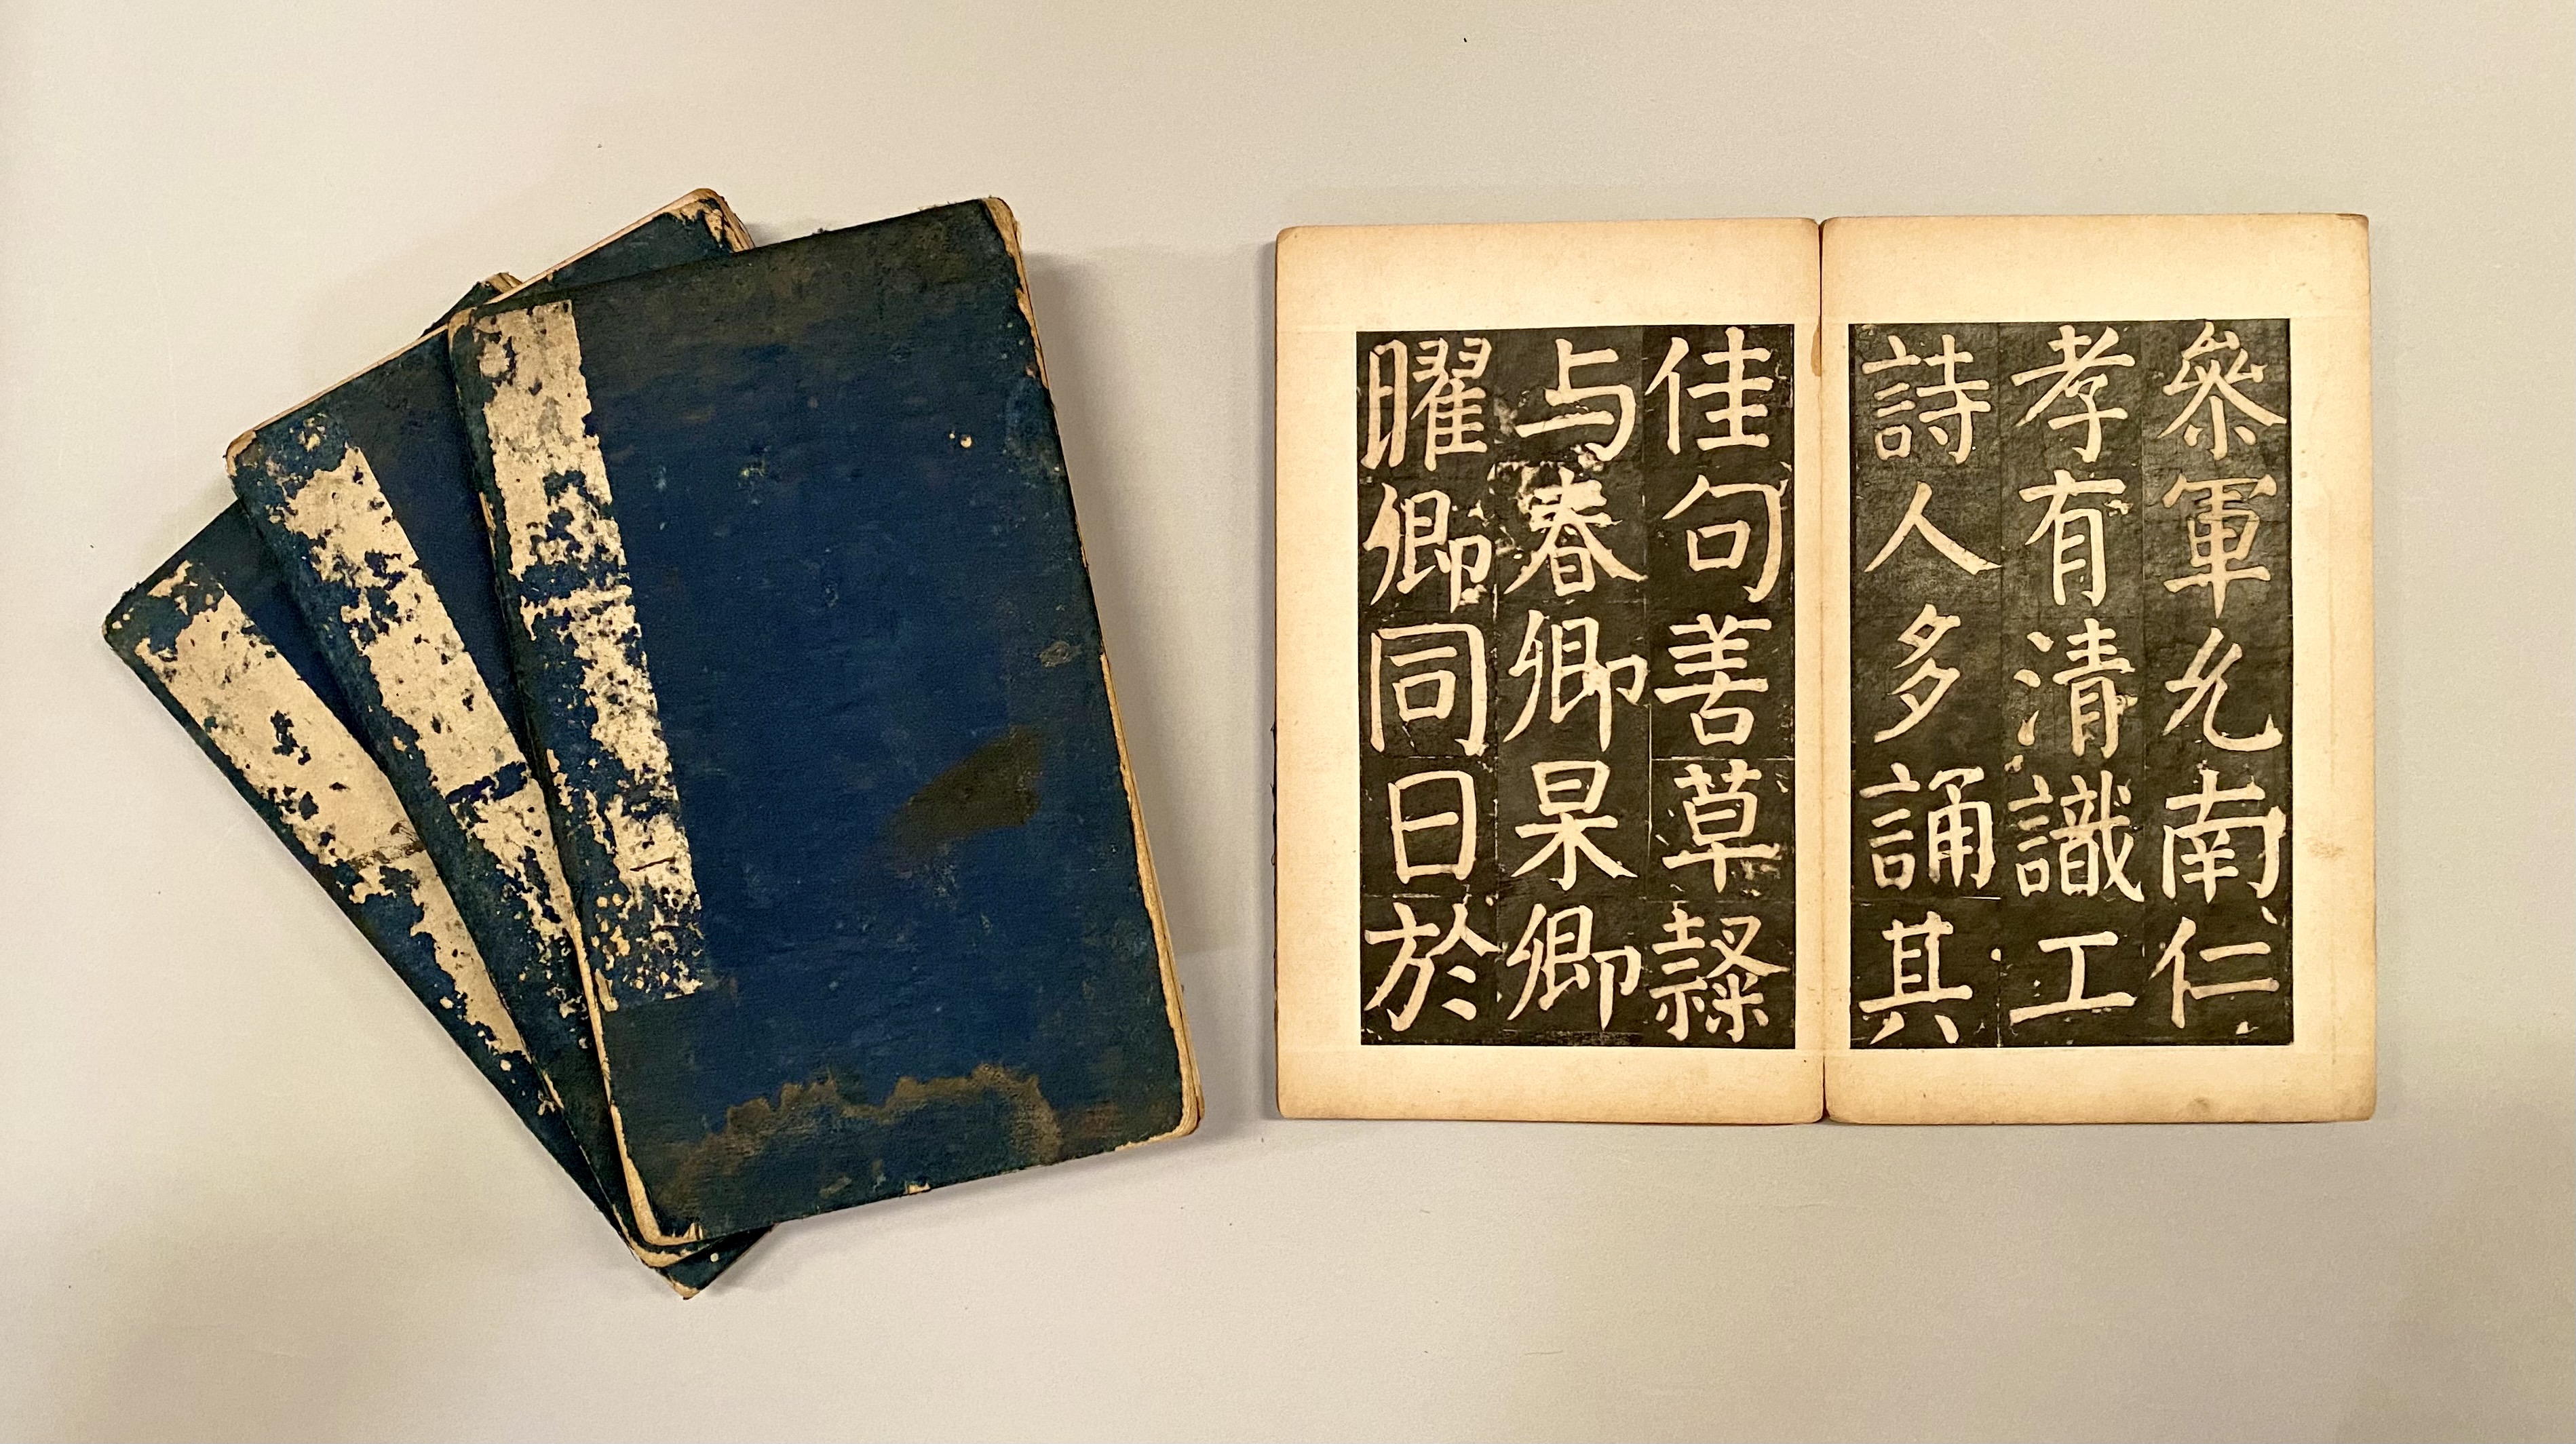 叅軍允南仁
孝有清識工
詩人多誦其
佳句善草𨽻
与春卿杲卿
曜卿同日於